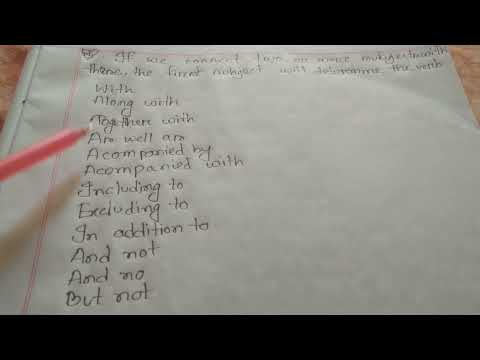 If we connect two or more subjects with
these, the first subject will determine the verb
With
Along with
Togethere with
As well as
Acompanied by
Acompanied with
Including to
Excluding to
In addition to
And not
And no
But not